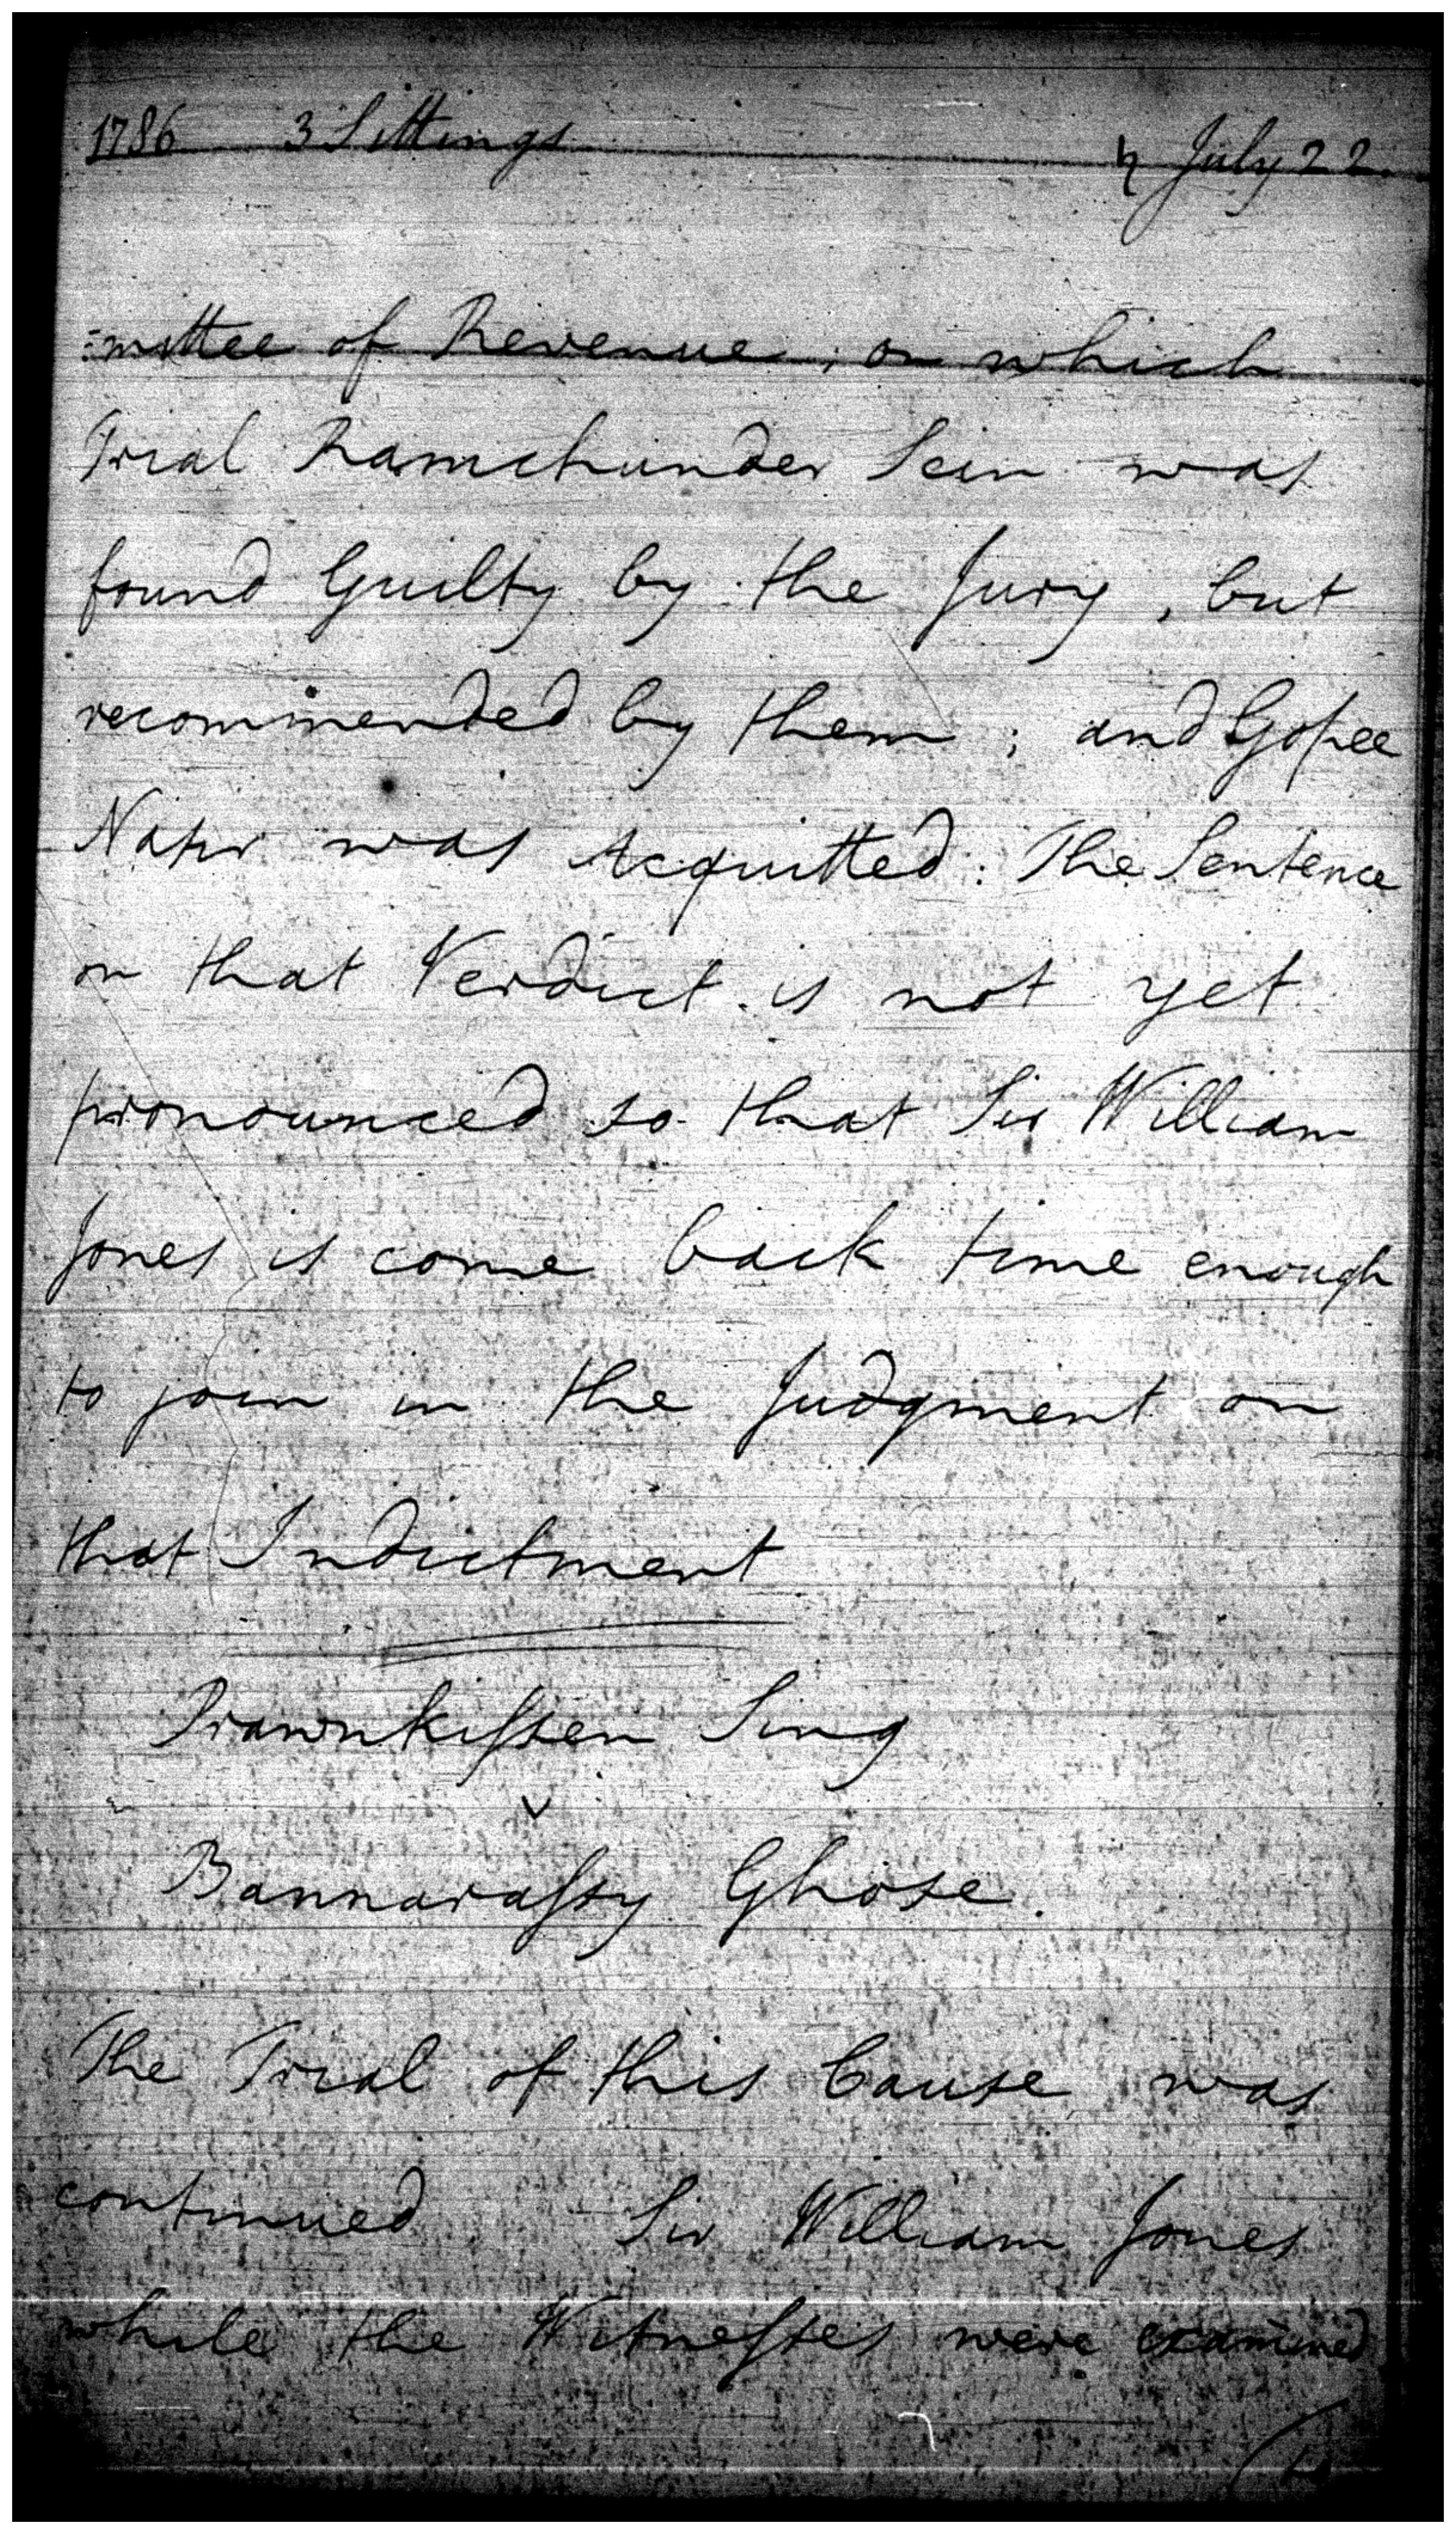 1786 3 Sittings ♄ July 22.
:mittee of Revenue; on which
Trial Ramchunder Sein was
found Guilty by the Jury, but
recommended by them; and Gopee
was Acquitted: The Sentence
on that Verdict is not yet
pronounced so that Sir William
Jones is come back time enough
to join in the Judgment on
that Indictment
Prawnkiſsen Sing
v
Bannaraſsy Ghose.
The Trial of this Cause was
continued Sir William Jones
while the Witneſses were examined